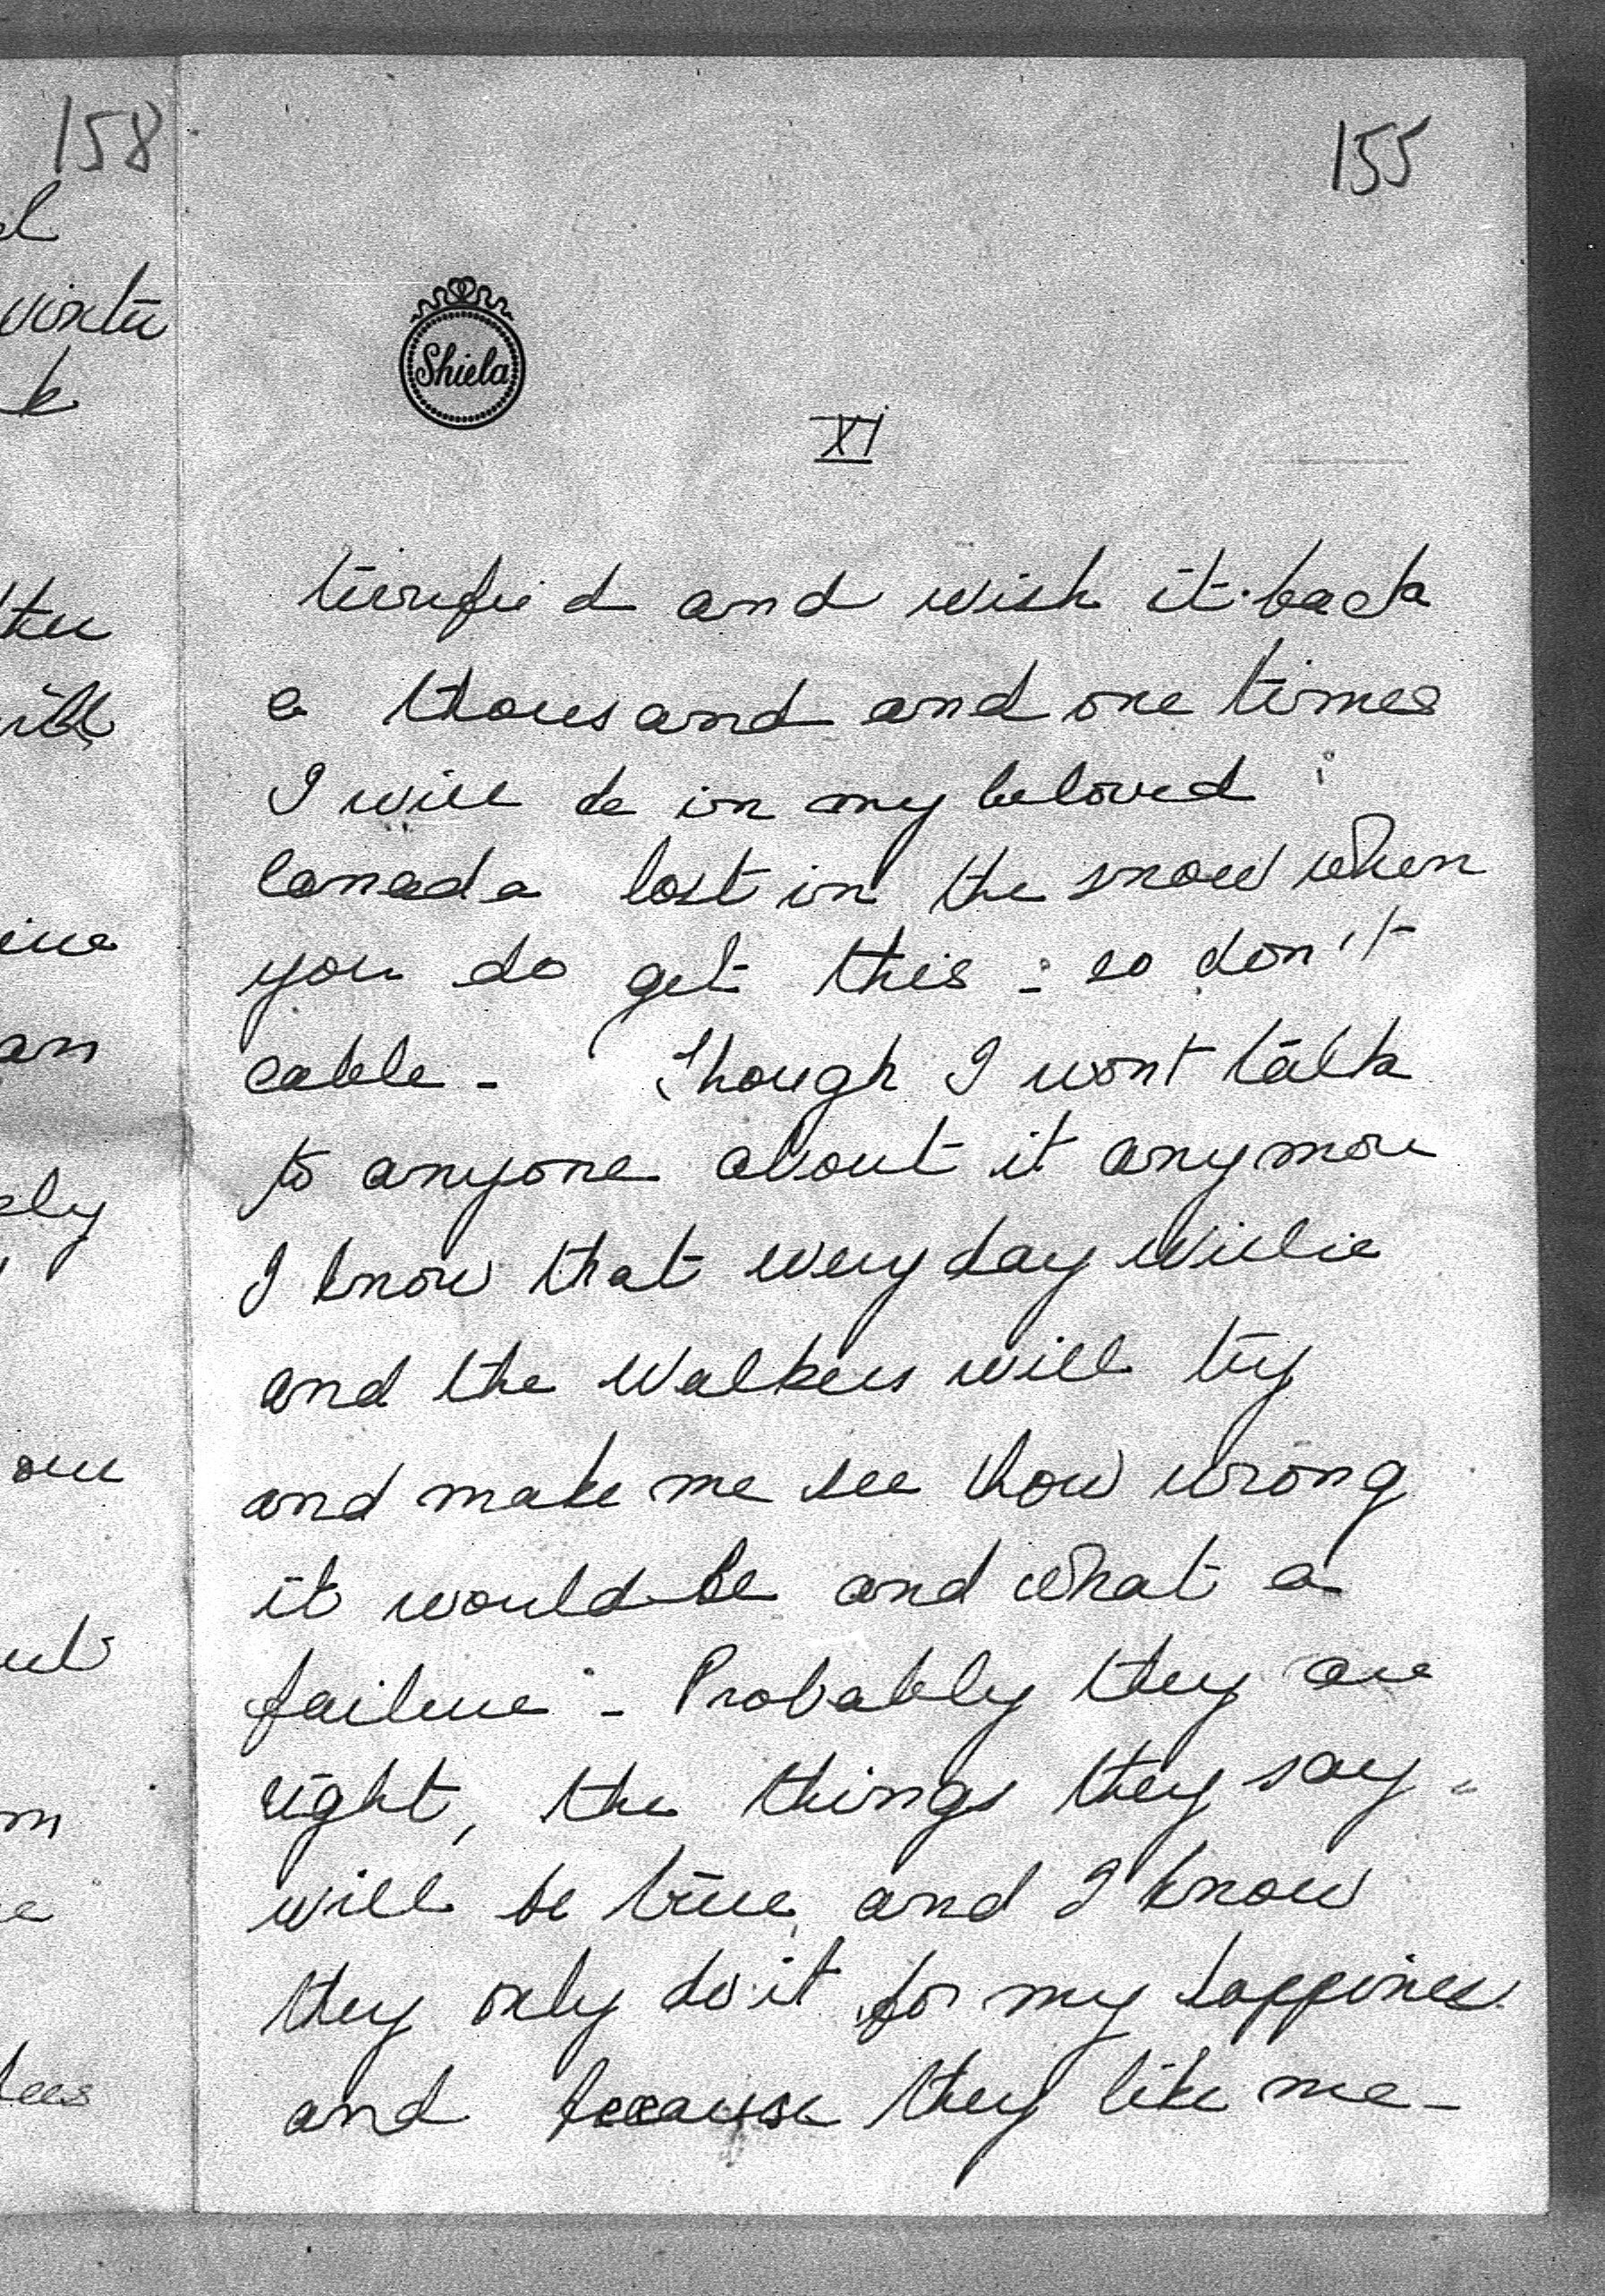 158
155
Shiela
XI
terrified and wish it back
a thousand and one times
I will be in my beloved
Canada lost in the snow when
you do get this - so don't
cable - Though I wont talk
to anyone about it anymore
I know that every day Willie
and the Walkers will try
and make me see how wrong
it would be and what a
failure - Probably they are
right, the things they say
will be true and I know
they only do it for my happiness
and because they like me -